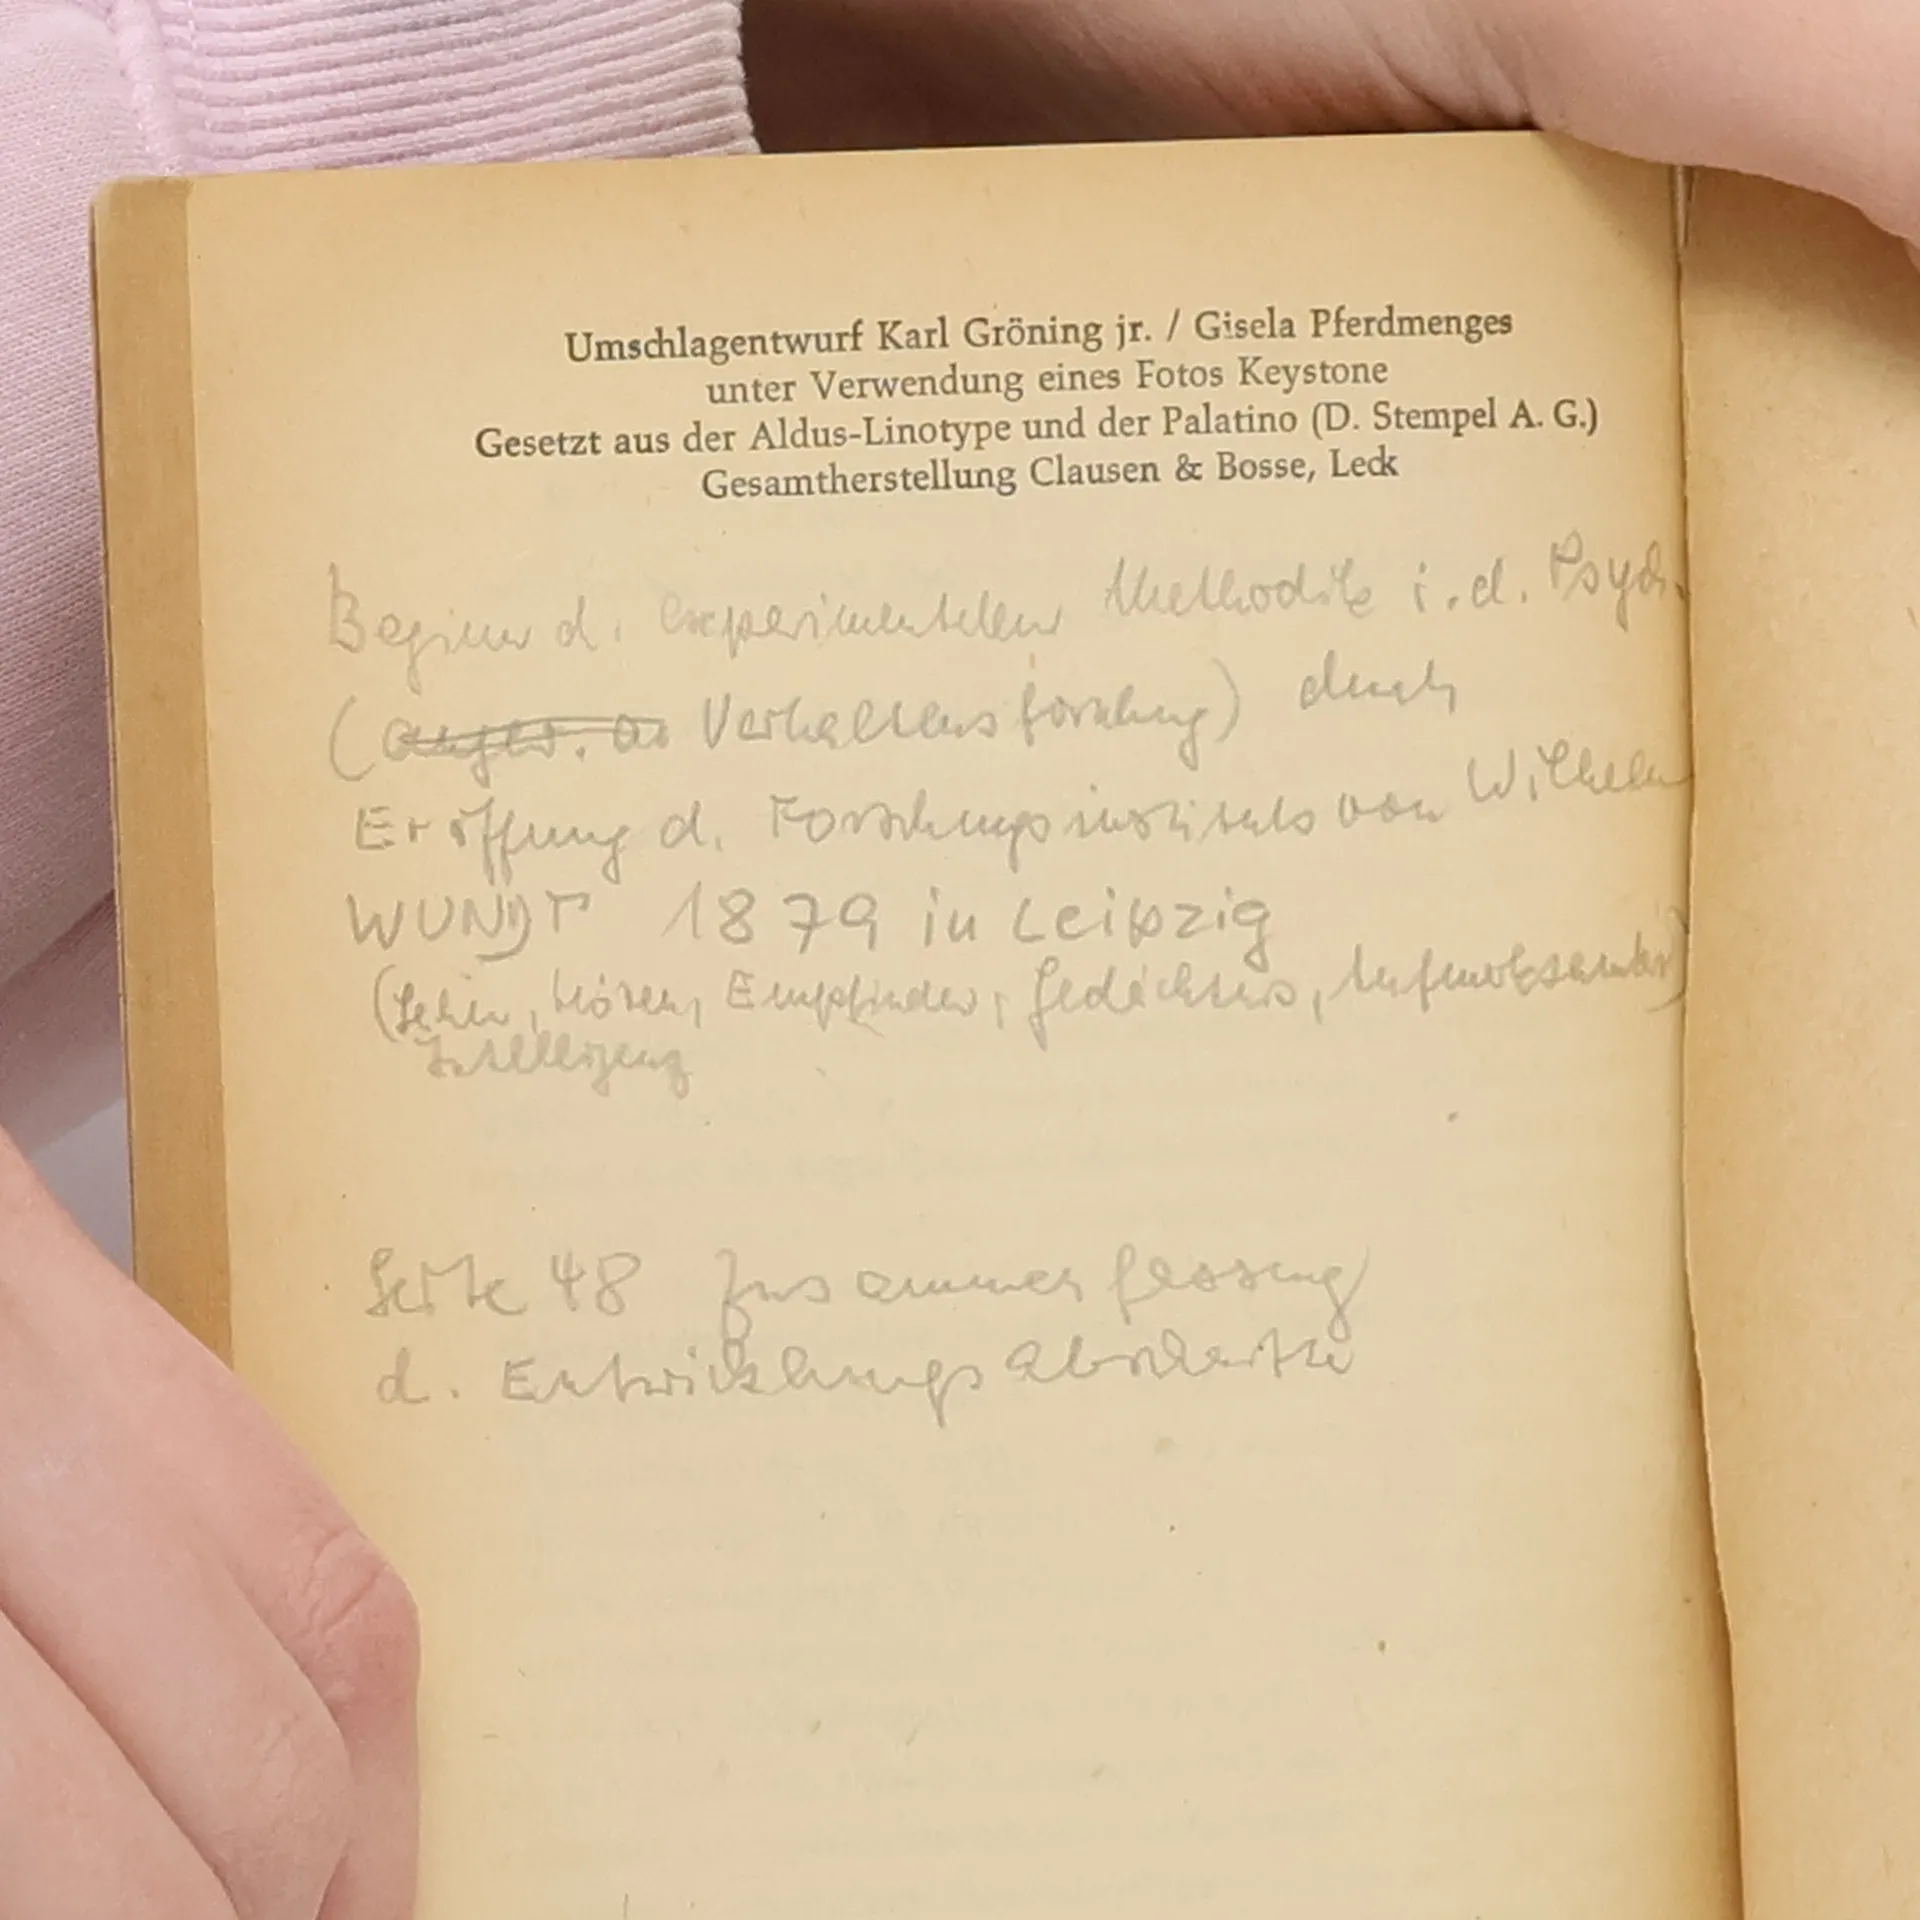 Umschlagentwurf Karl Gröning jr. / Gisela Pferdmenges
unter Verwendung eines Fotos Keystone
Gesetzt aus der Aldus-Linotype und der Palatino (D. Stempel A. G.)
Gesamtherstellung Clausen & Bosse, Leck
Beginn d. experimentellen Methodik i. d. Psych.
( Verhaltensforschung) durch
Eröffnung d. Forschungsinstituts von Wilhelm
WUNDT 1879 in Leipzig
(Sehen, Hören, Empfinden, Gedächtnis, Aufmerksamkeit)
Intelligenz
Seite 48 Zusammenfassung
d. Entwicklungsabschnitte